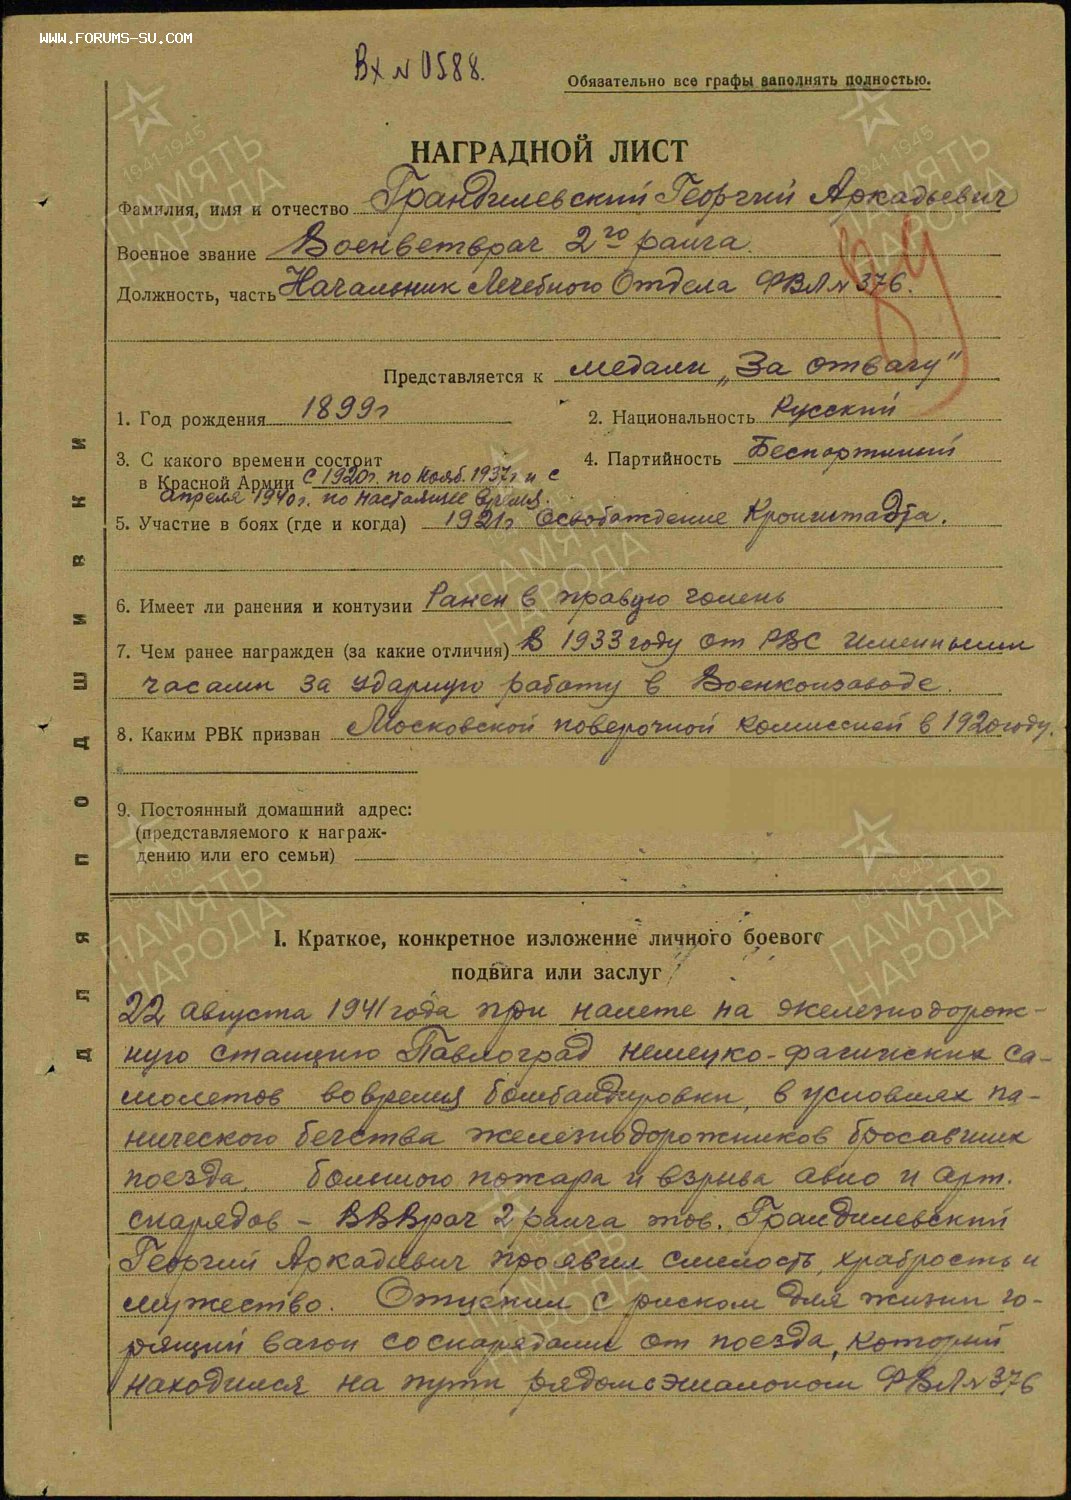 WWW.FORUMS-SU.COM
Вх № 0588.
Обязательно все графы заполнять полностью.
НАГРАДНОЙ ЛИСТ
Фамилия, имя и отчество Грандилевский Георгий Аркадьевич
Военное звание Военветврач 2го ранга.
Должность, часть Начальник Лечебного Отдела ФВЛ № 376.
Представляется к медали „За отвагу"
1. Год рождения 1899г
2. Национальность Русский
3. С какого времени состоит
в Красной Армии с 1920г. по нояб. 1937г и с
апреля 1940г. по настоящее время.
4. Партийность Беспартийный
5. Участие в боях (где и когда) 1921г Освобождение Кронштадта.
6. Имеет ли ранения и контузии Ранен в правую голень
7. Чем ранее награжден (за какие отличия) В 1933 году от РВС именными
часами за ударную работу в Военконзаводе.
8. Каким РВК призван Московской поверочной комиссией в 1920 году.
9. Постоянный домашний адрес:
(представляемого к награж-
дению или его семьи)
I. Краткое, конкретное изложение личного боевого
подвига или заслуг
22 августа 1941 года при налете на железнодорож-
ную станцию Павлоград немецко-фашиских са-
молетов вовремя бомбандировки, в условиях па-
нического бегства железнодорожников бросавших
поезда, большого пожара и взрыва авио и арт.
снарядов – ВВВрач 2 ранга тов. Грандилевский
Георгий Аркадиевич проявил смелость, храбрость и
мужество. Отцепил с риском для жизни го-
рящий вагон со снарядами от поезда, который
находился на пути рядом с эшалоном ФВЛ № 376
ДЛЯ ПОДШИВКИ
1941-1945
ПАМЯТЬ
НАРОДА
1941-1945
ПАМЯТЬ
НАРОДА
ПАМЯТЬ
НАРОДА
1941-1945
ПАМЯТЬ
НАРОДА
1941-1945
ПАМЯТЬ
НАРОДА
ПАМЯТЬ
НАРОДА